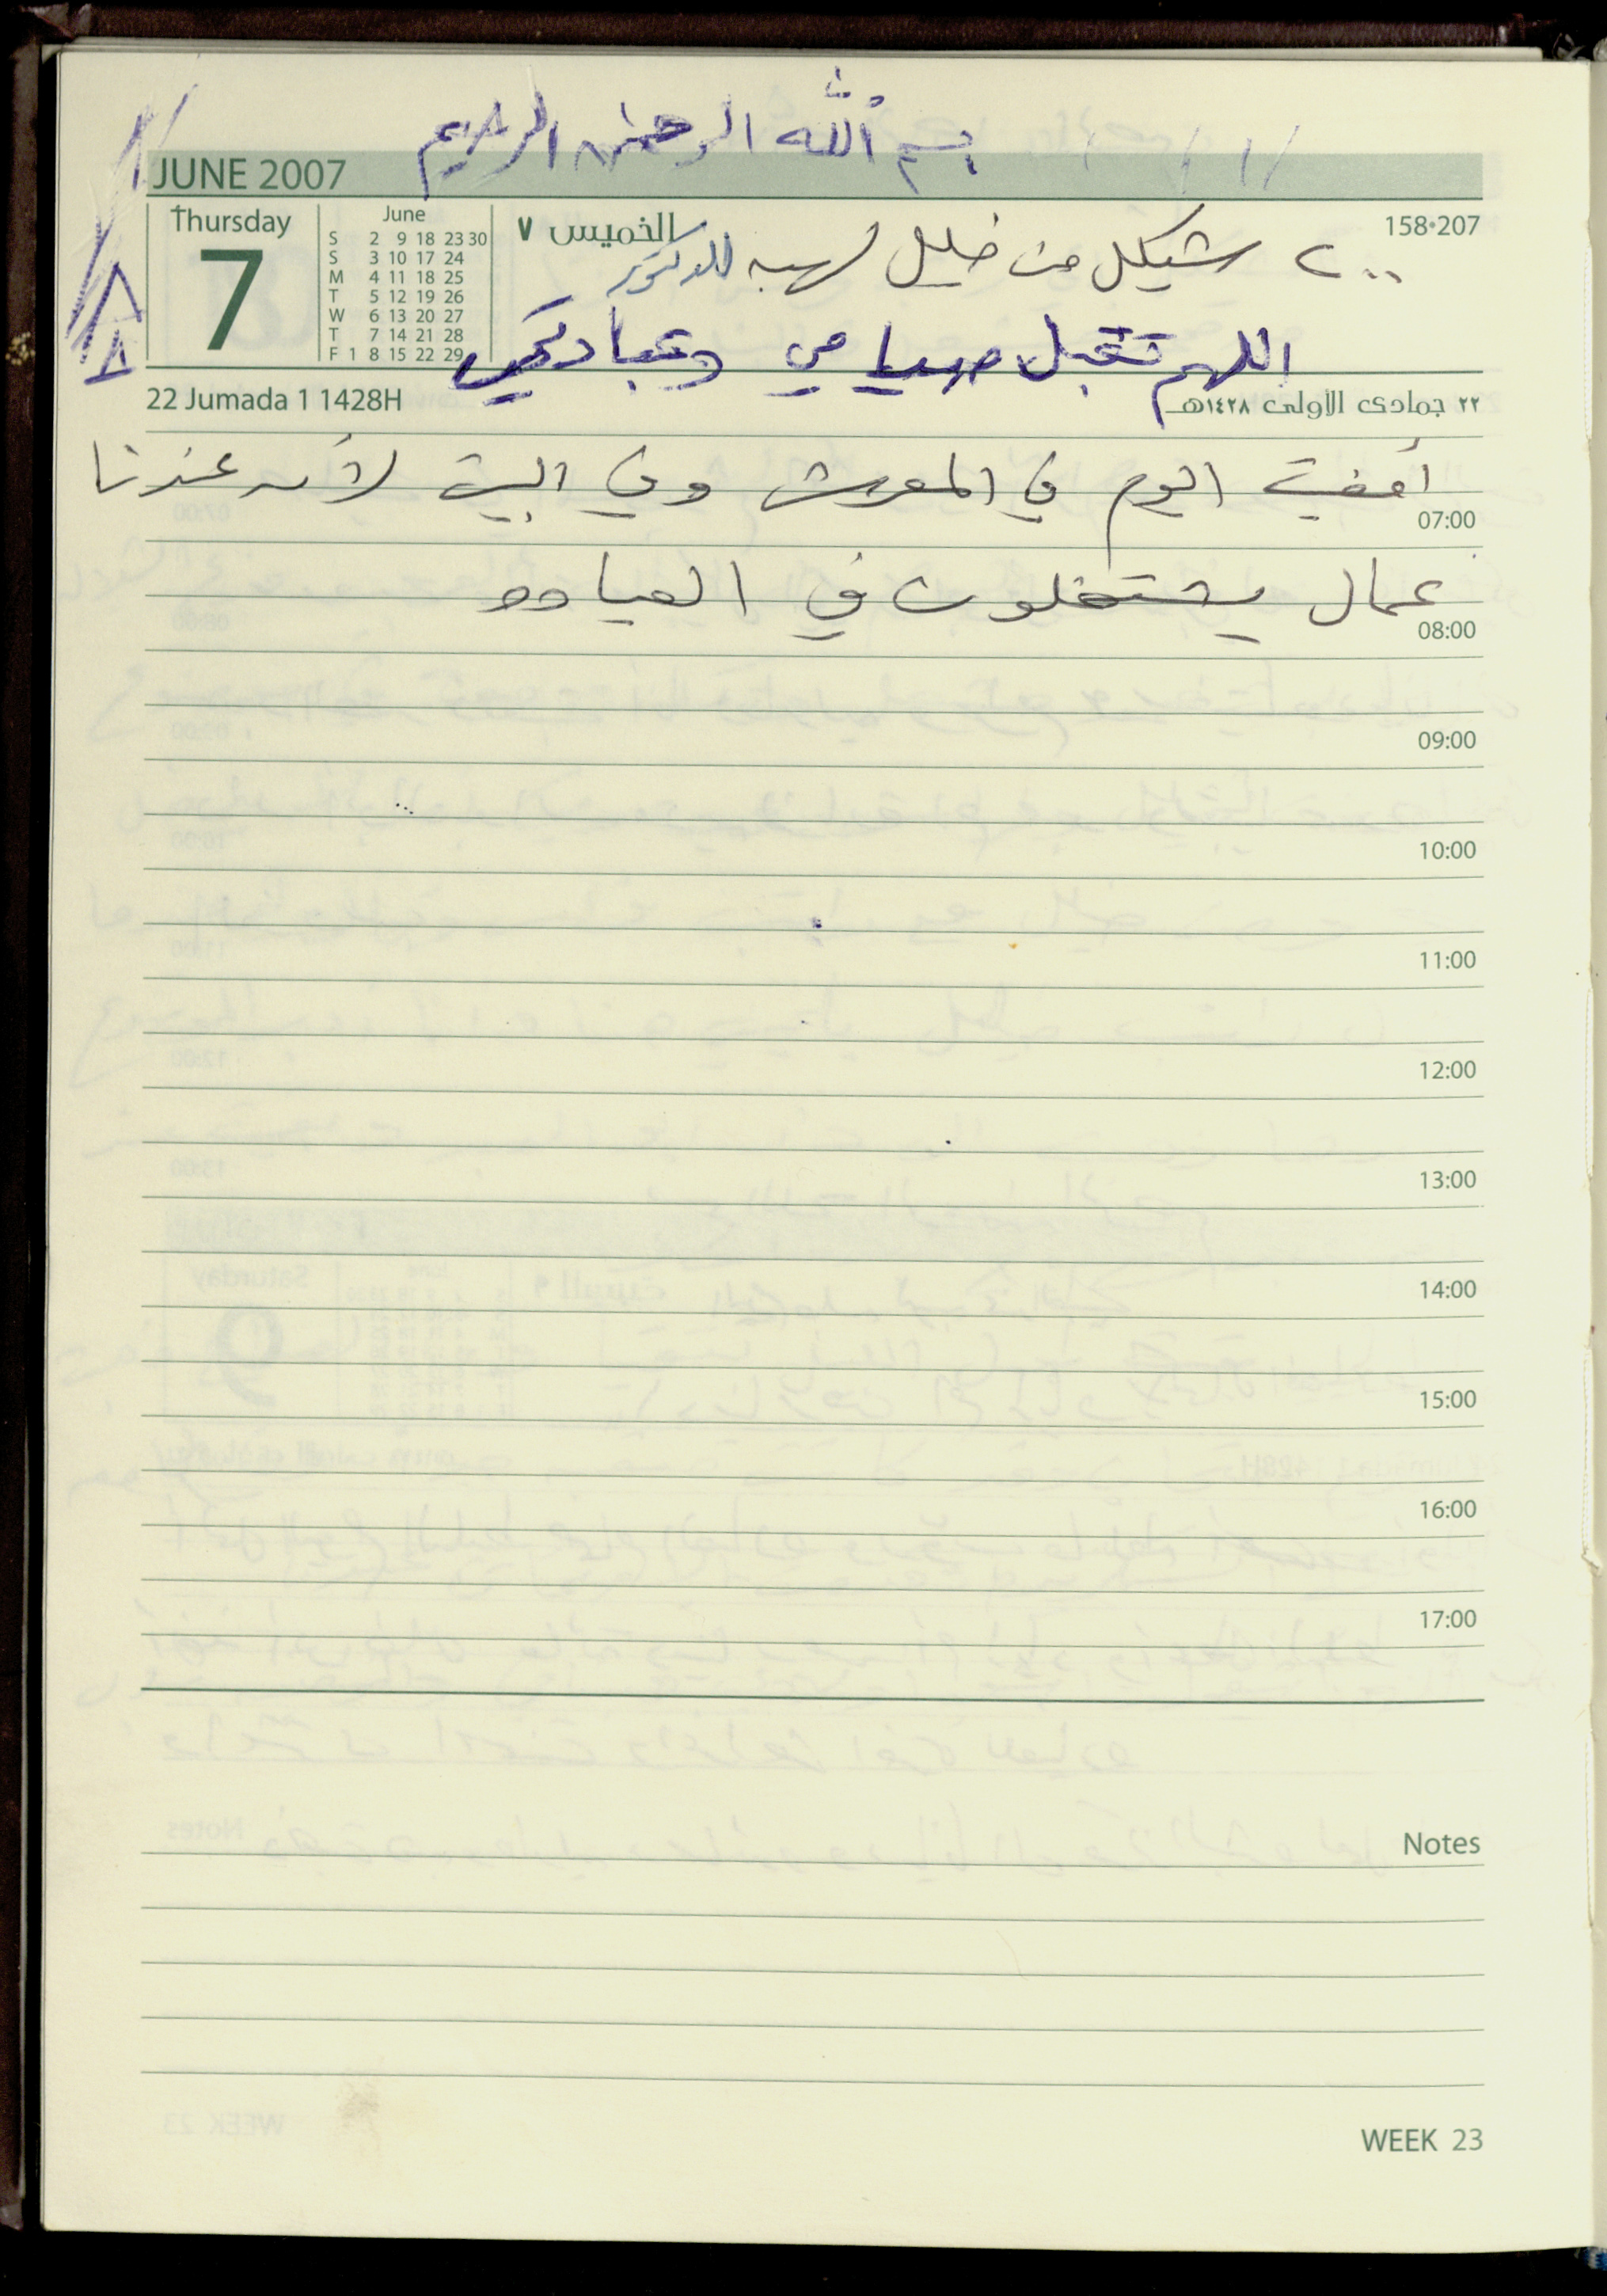 بسم الله الرحمن الرحيم
JUNE 2007
Thursday
7
June
S 2 9 18 23 30
S 3 10 17 24
M 4 11 18 25
T 5 12 19 26
W 6 13 20 27
T 7 14 21 28
F 1 8 15 22 29
الخميس ٧
158•207
٢٠٠ شيكل من خليل لهبه للدكتور
اللهم تقبل صيامي وعبادتي
22 Jumada 1 1428H
٢٢ جمادى الأولى ١٤٢٨هـ
أمضيت اليوم في المعرش وفي البيت لأنه عندنا
07:00
عمال يشتغلون في العيادة
08:00
09:00
10:00
11:00
12:00
13:00
14:00
15:00
16:00
17:00
Notes
WEEK 23